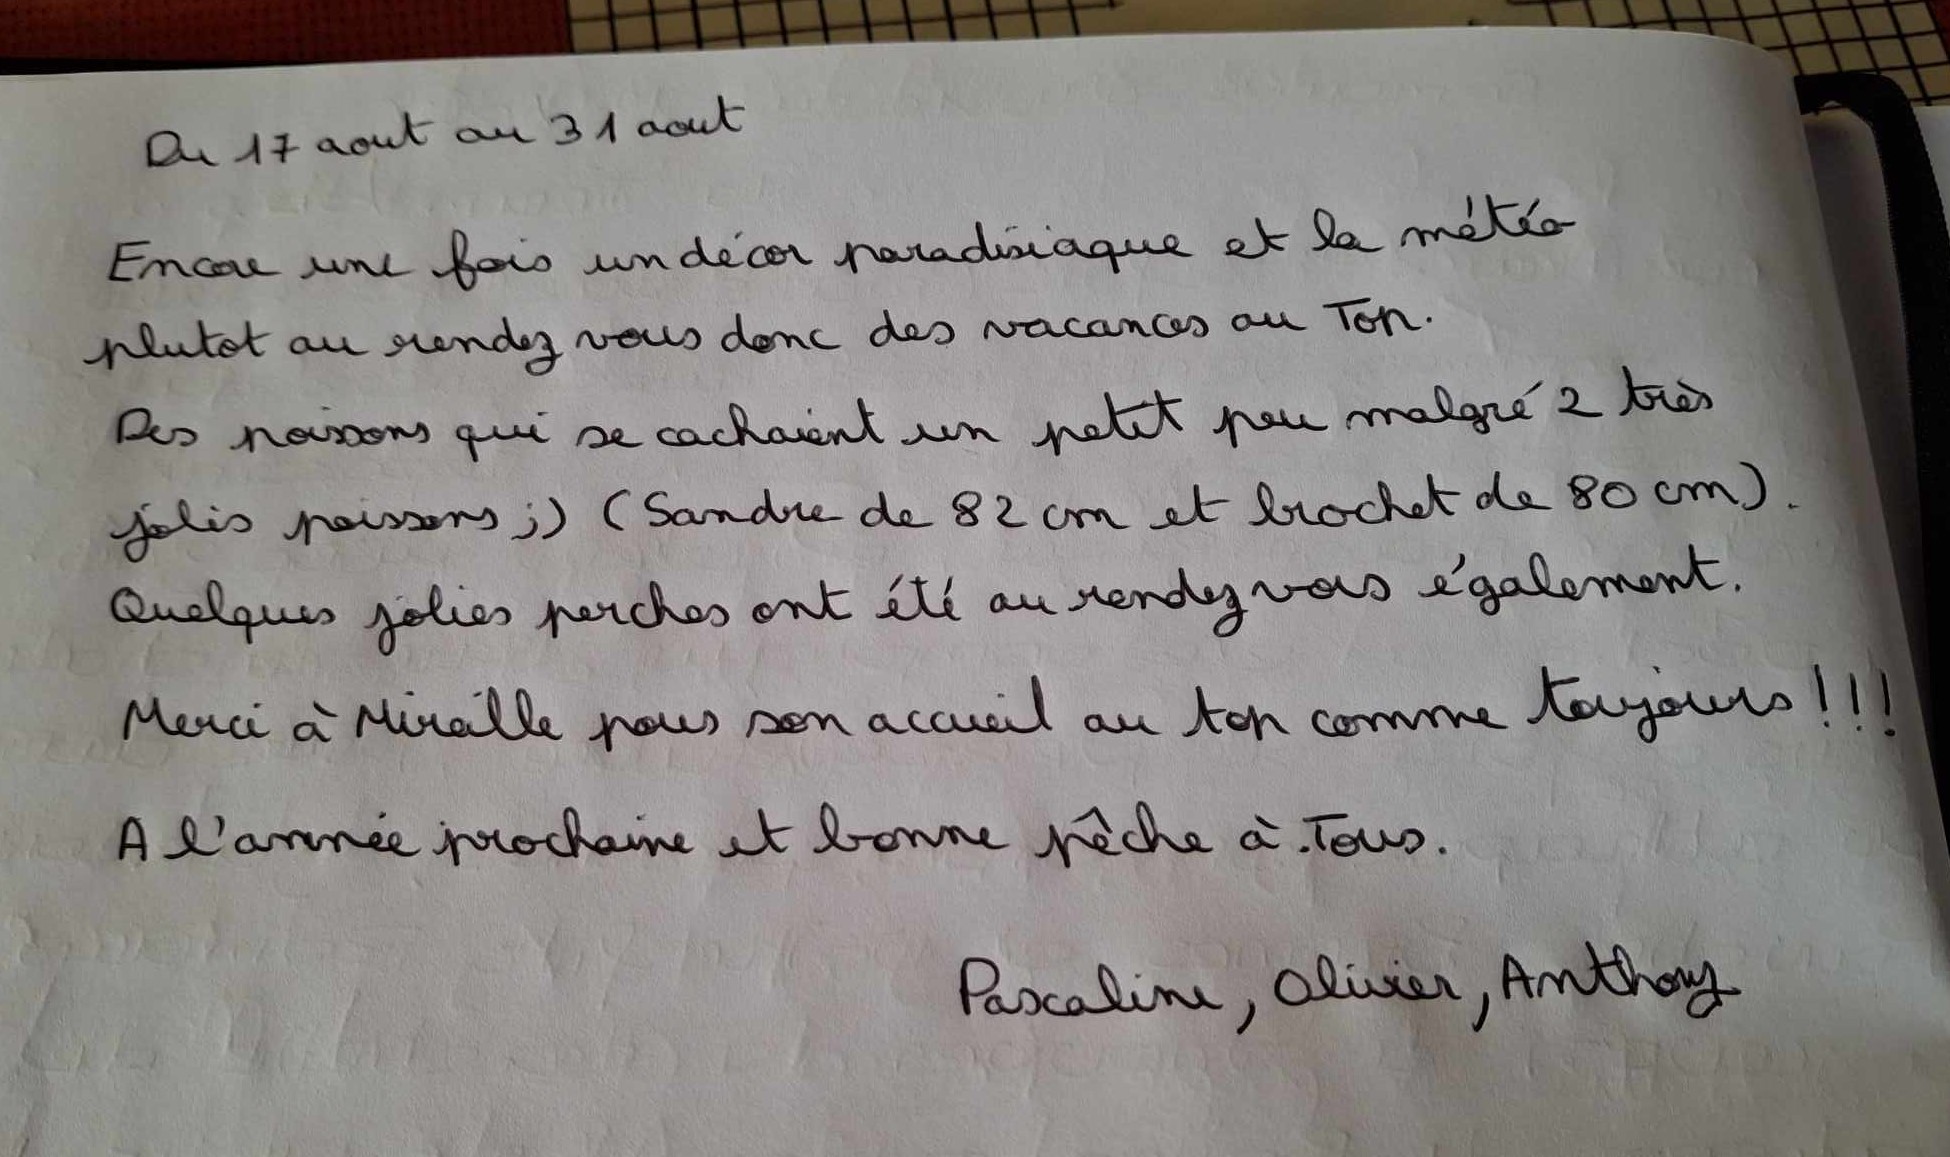 Du 17 aout au 31 aout
Encore une fois un décor paradisiaque et la météo
plutot au rendez vous donc des vacances au Top.
Des poissons qui se cachaient un petit peu malgré 2 très
jolis poissons ;) (Sandre de 82 cm et brochet de 80 cm).
Quelques jolies perches ont été au rendez vous également.
Merci à Mireille pour son accueil au top comme toujours !!!
A l'année prochaine et bonne pêche à Tous.
Pascaline, Olivier, Anthony